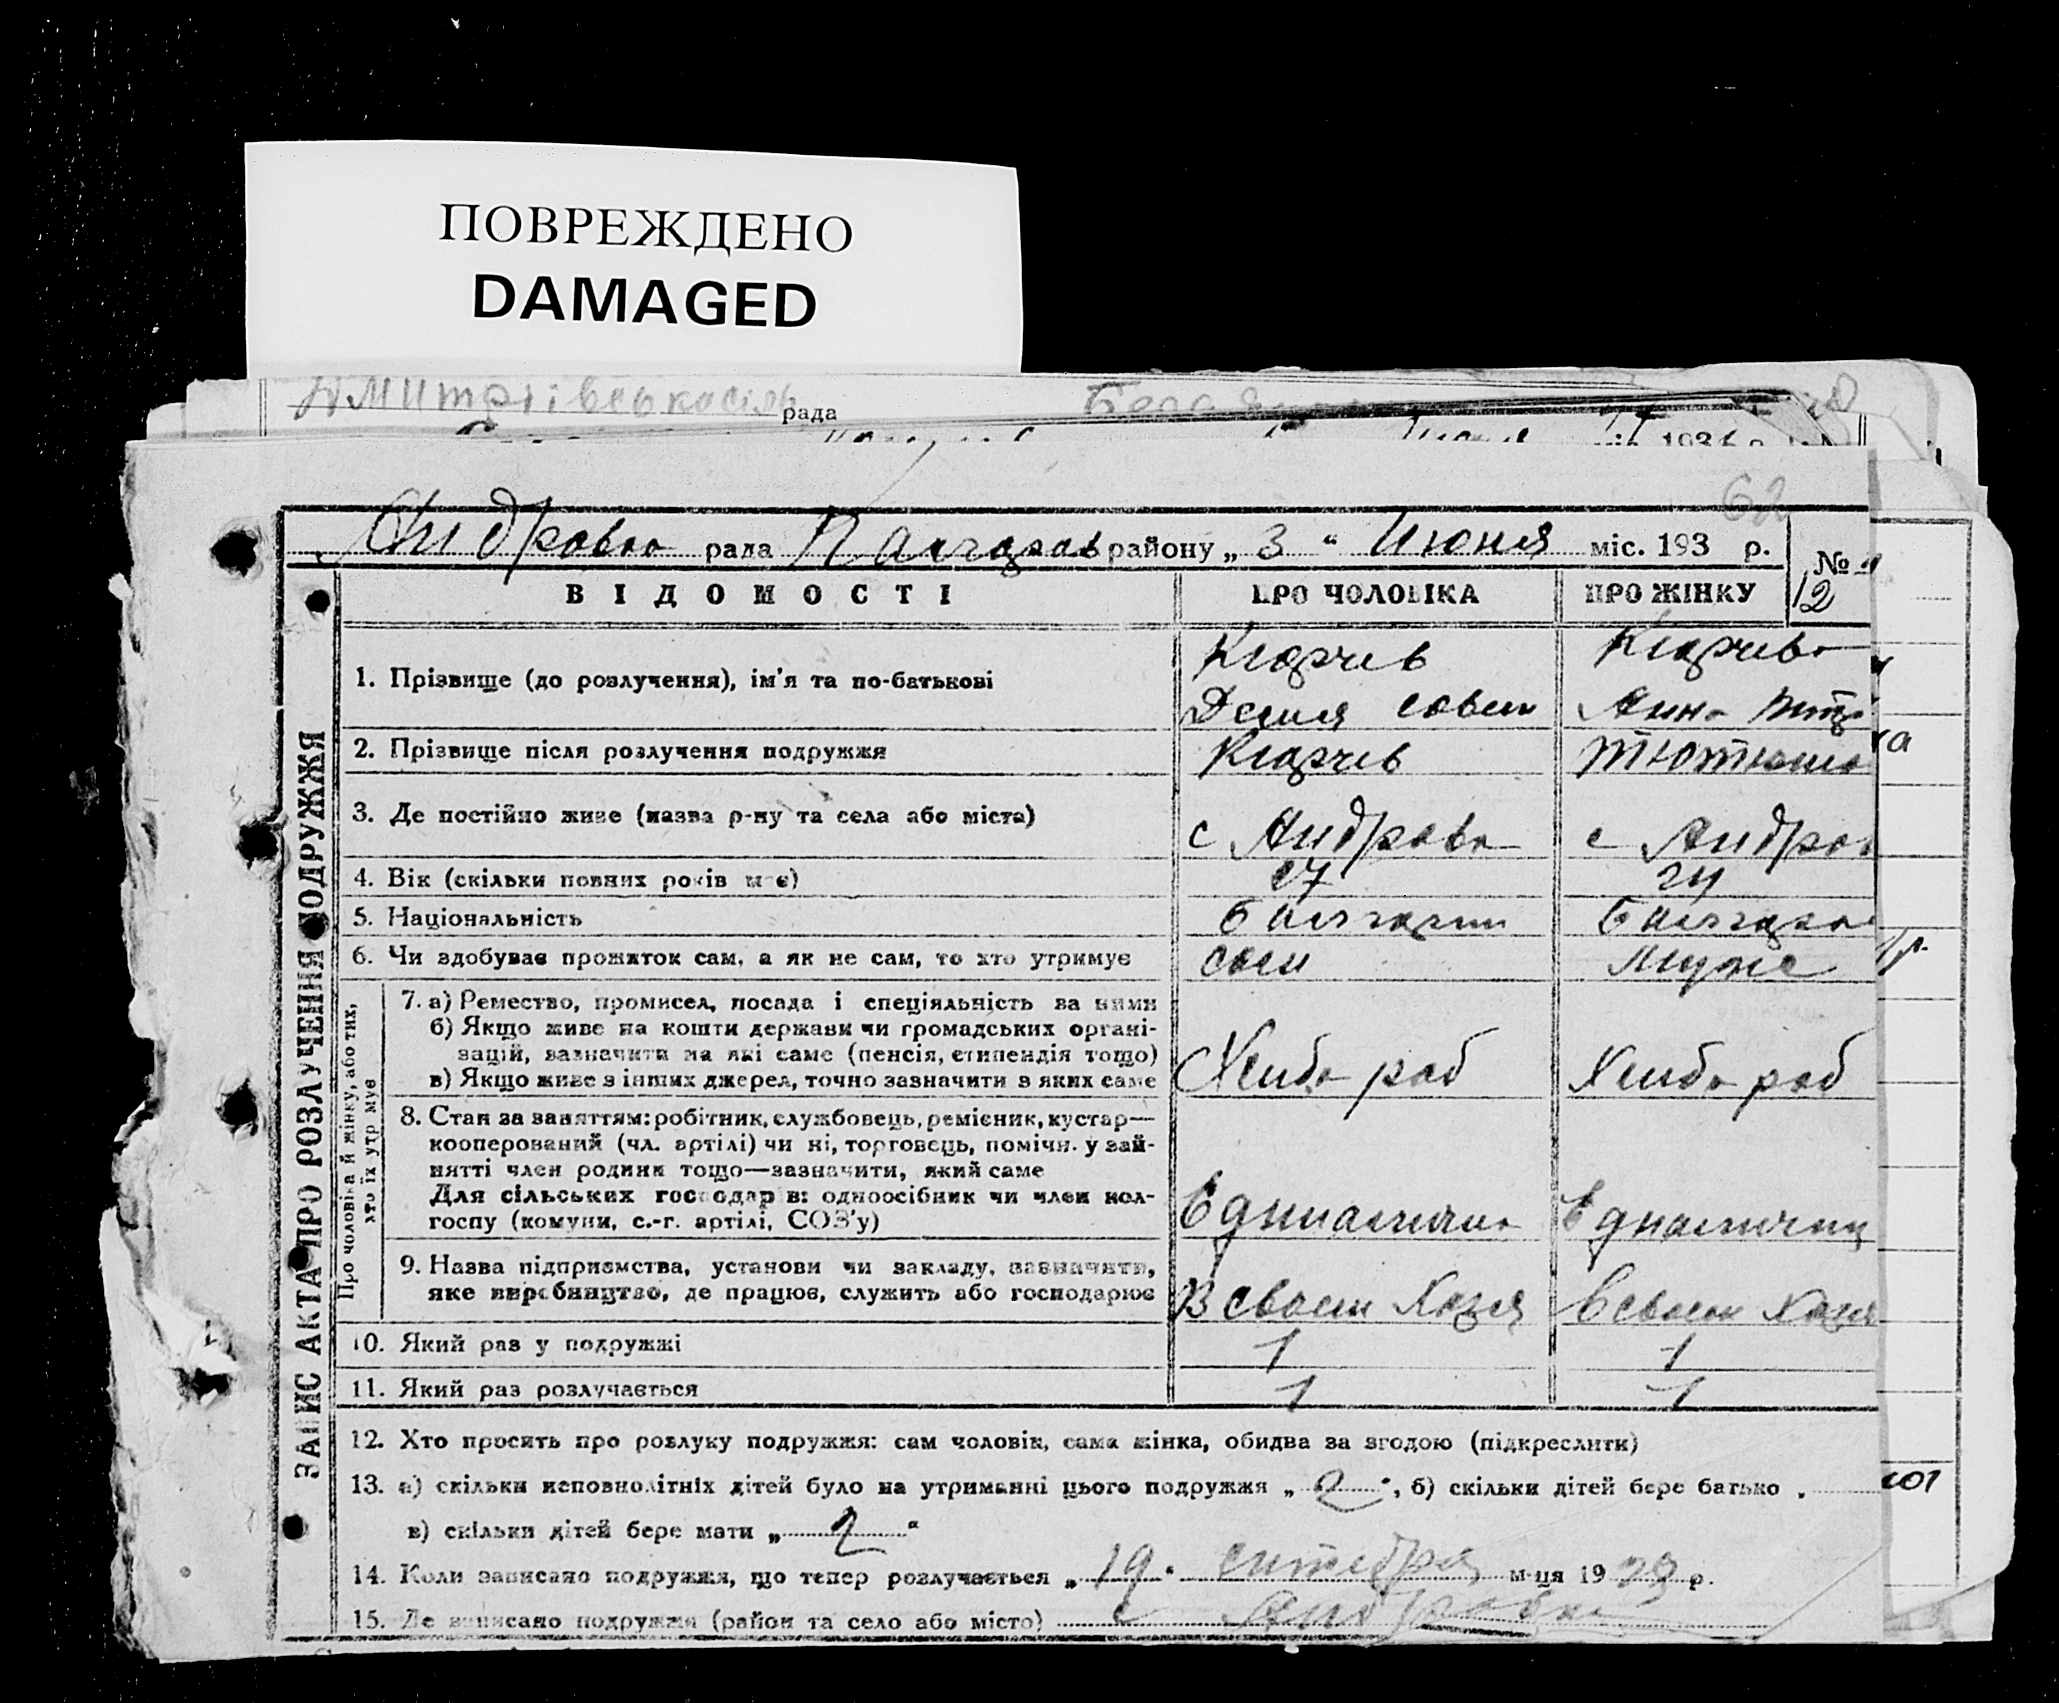 ПОВРЕЖДЕНО
DAMAGED
Дмитрівська сіль рада
62
Андровка рада района району „ 3 “ Июня міс. 193 р.
№
12
ВІДОМОСТІ ПРО ЧОЛОВІКА ПРО ЖІНКУ
Кюрчев Кюрчева
1. Прізвище (до розлучення), ім'я та по-батькові
Савели Анна
2. Прізвище після розлучення подружжя Кюрчев Тютюнн
3. Де постійно живе (назва р-ну та села або міста) с Андровка с Андров
4. Вік (скільки повних років має) 27 24
5. Національність болгарин болгарка
6. Чи здобуває прожиток сам, а як не сам, то хто утримує сам муже
7. а) Ремество, промисел, посада і спеціяльність за ними
б) Якщо живе на кошти держави чи громадських органі-
зацій, зазначити на які саме (пенсія, стипендія тощо)
в) Якщо живе з інших джерел, точно зазначити з яких саме Хлибо роб Хлибо роб
8. Стан за заняттям: робітник, службовець, ремісник, кустар—
кооперований (чл. артілі) чи ні, торговець, помічн. у зай-
нятті член родини тощо—зазначити, який саме
Для сільських господарів: одноосібник чи член кол-
госпу (комуни, с.-г. артілі, СОЗ'у) Единалична Едналични
9. Назва підприємства, установи чи закладу, зазначити,
яке виробництво, де працює, служить або господарює В своем Хозя в своем Хозя
10. Який раз у подружжі 1 1
11. Який раз розлучається 1 1
12. Хто просить про розлуку подружжя: сам чоловік, сама жінка, обидва за згодою (підкреслити)
13. а) скільки неповнолітніх дітей було на утриманні цього подружжя „ 2 “, б) скільки дітей бере батько
в) скільки дітей бере мати „ 2 “
14. Коли записано подружжя, що тепер розлучається „ 19 “ синтебря м-ця 1929 р.
15. Де записано подружжя (район та село або місто) с Андровка
ЗАПИС АКТА ПРО РОЗЛУЧЕННЯ ПОДРУЖЖЯ
Про чоловіка й жінку, або тих,
хто їх утримує